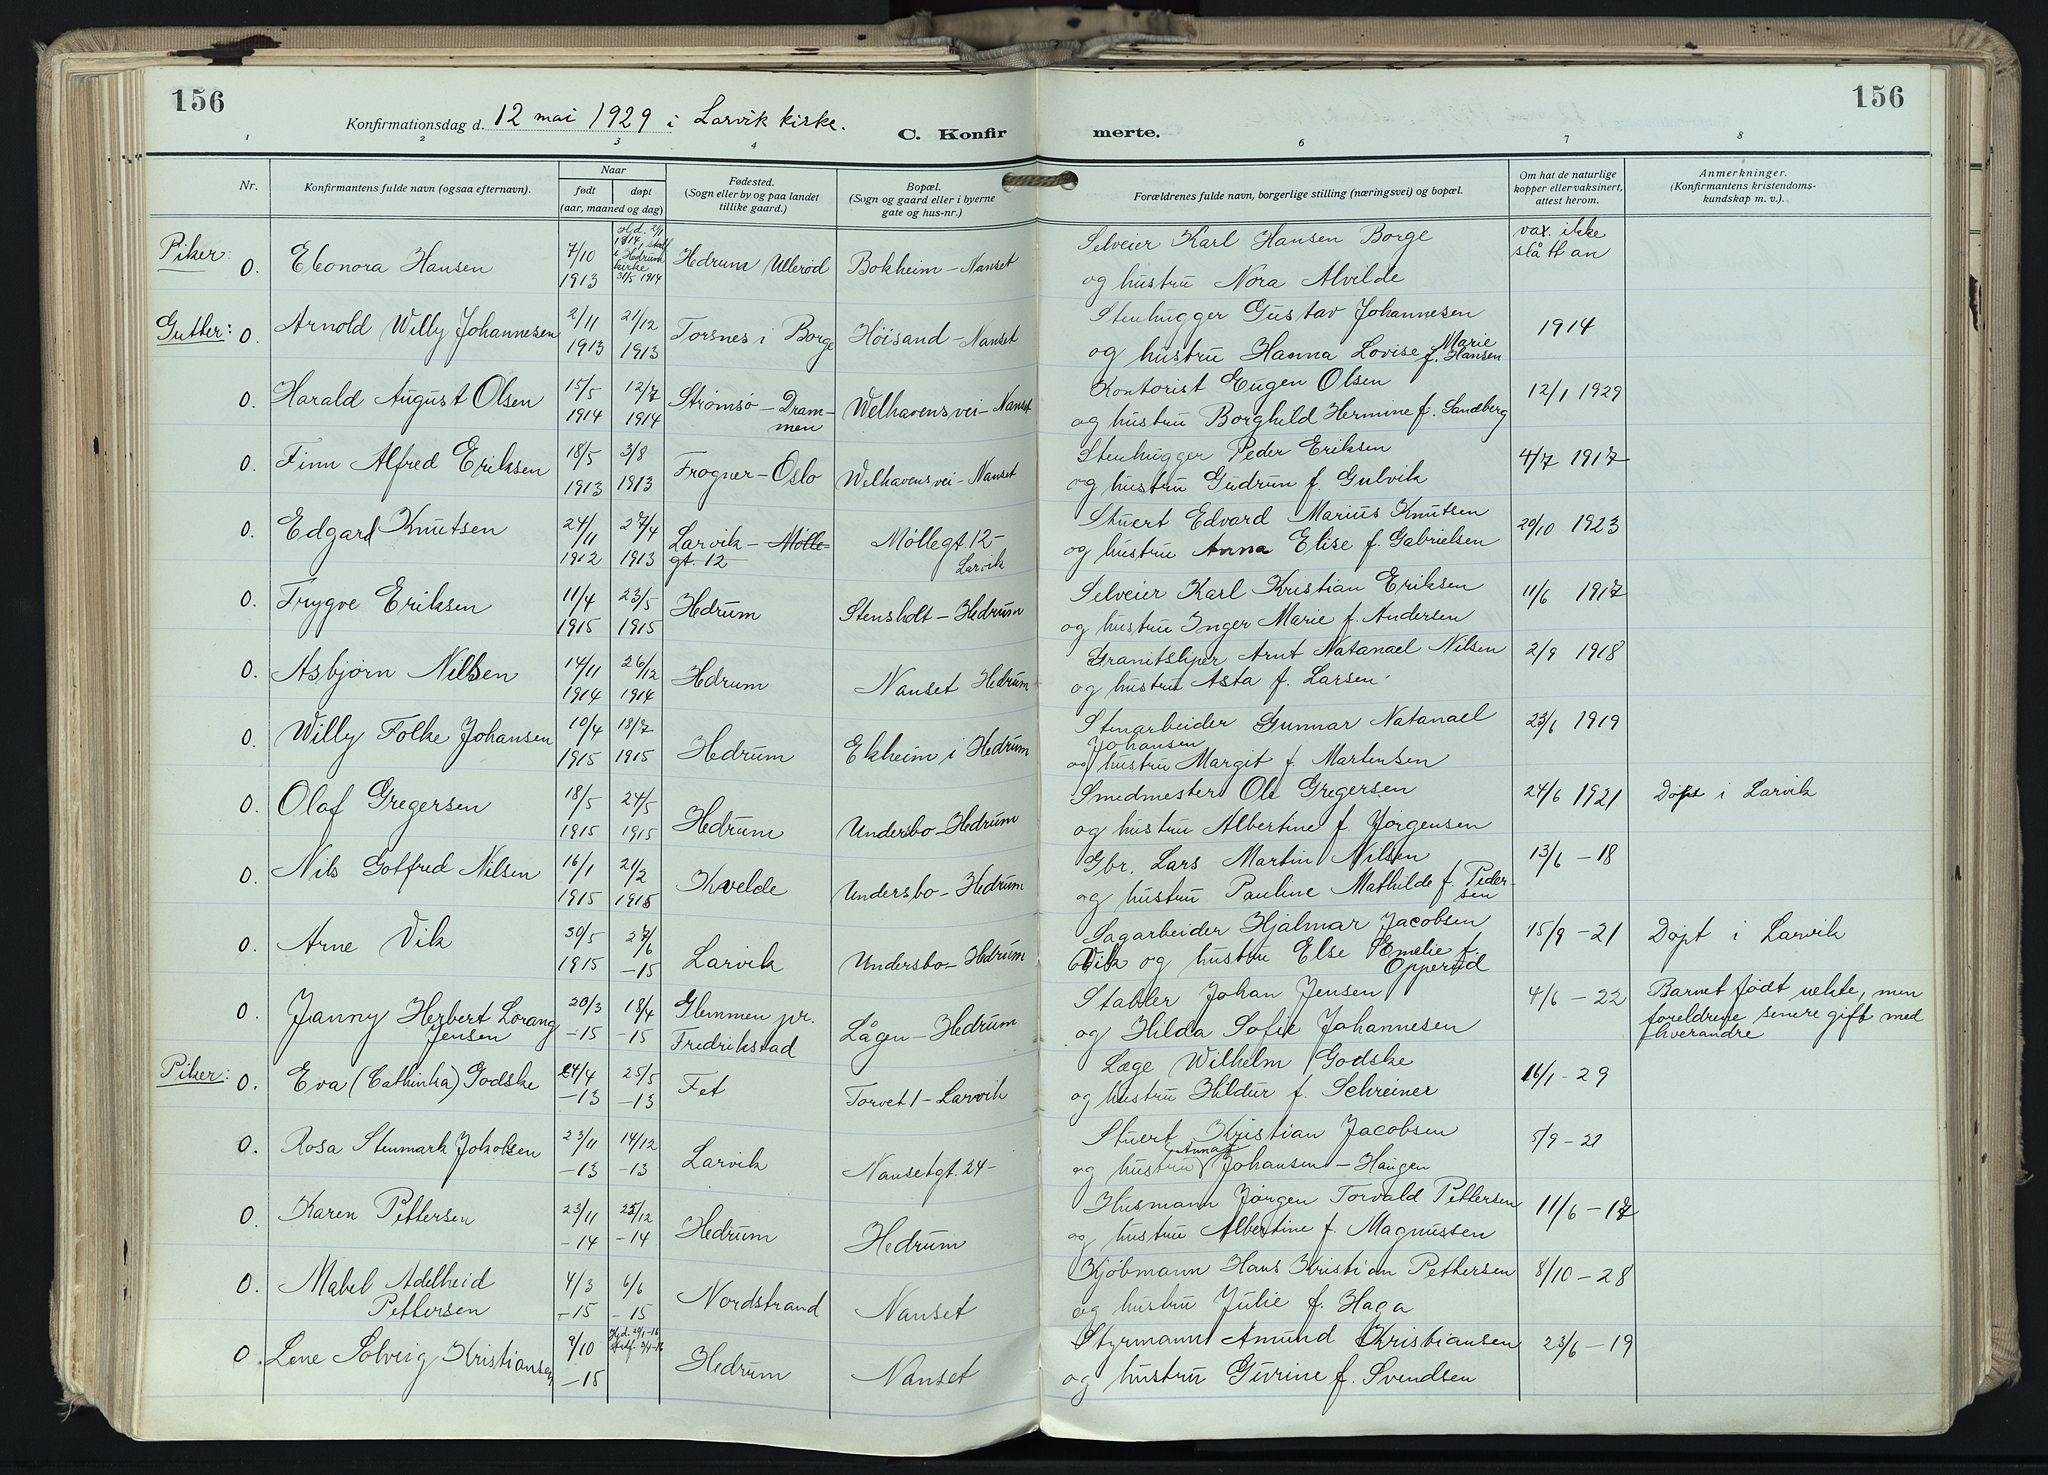 156
156
Konfirmationsdag d. 12 mai 1929 i Larvik kirke.
C. Konfir merte.
1 2 3 4 6 7 8
Nr.
Konfirmantens fulde navn (ogsaa efternavn).
Naar
født døpt
(aar, maaned og dag)
Fødested.
(Sogn eller by og paa landet
tillike gaard.)
Bopæl.
(Sogn og gaard eller i byerne
gate og hus-nr.)
Forældrenes fulde navn, borgerlige stilling (næringsvei) og bopæl.
Om hat de naturlige
kopper eller vaksinert,
attest herom.
Anmerkninger.
(Konfirmantens kristendoms-
kundskap m. v.).
Piker:
O. Eleonora Hansen 7/10 1913 Hjd. 2/1 1914, stadf. i Hedrum kirke 31/5 1914 Hedrum Ullerød Bokheim - Nanset
Selveier Karl Hansen Borge
og hustru Nora Alvilde
vax. ikke
slått an
Gutter:
O. Arnold Willy Johannesen 2/11 1913 21/12 1913 Torsnes i Borge Høisand - Nanset
Stenhugger Gustav Johannesen
og hustru Hanna Lovise Marie f. Hansen
1914
O. Harald August Olsen 15/5 1914 12/7 1914 Strømsø - Drammen Welhavens vei - Nanset
Kontorist Eugen Olsen
og hustru Borghild Hermine f. Sandberg
12/1 1929
O. Finn Alfred Eriksen 18/5 1913 3/8 1913 Frogner - Oslo Welhavens vei - Nanset
Stenhugger Peder Eriksen
og hustru Gudrun f. Gulvik
4/7 1917
O. Edgard Knutsen 24/11 1912 27/4 1913 Larvik - Møllegt. 12 Møllegt 12 - Larvik
Stuert Edvard Marius Knutsen
og hustru Anna Elise f. Gabrielsen
20/10 1923
O. Trygve Eriksen 11/4 1915 23/5 1915 Hedrum Stensholt - Hedrum
Selveier Karl Kristian Eriksen
og hustru Inger Marie f. Andersen
11/6 1917
O. Asbjørn Nilsen 14/11 1914 26/12 1914 Hedrum Nanset Hedrum
Granitsliper Arnt Natanael Nilsen
og hustru Asta f. Larsen
2/9 1918
O. Willy Folke Johansen 10/4 1915 18/7 1915 Hedrum Ekheim i Hedrum
Stenarbeider Gunnar Natanael
Johansen
og hustru Margit f. Martensen
23/6 1919
O. Olaf Gregersen 18/5 1915 24/5 1915 Hedrum Undersbo - Hedrum
Smedmester Ole Gregersen
og hustru Albertine f. Jørgensen
24/6 1921
Døpt i Larvik
O. Nils Gotfred Nilsen 16/1 1915 21/2 1915 Kvelde Undersbo - Hedrum
Gbr. Lars Martin Nilsen
og hustru Pauline Mathilde f. Pedersen
13/6 - 18
O. Arne Vik 30/5 1915 27/6 -15 Larvik Undersbo - Hedrum
Sagarbeider Hjalmar Jacobsen
Vik og hustru Else Emelie f.
Opperud
15/9 - 21
Døpt i Larvik
O. Janny Herbert Lorang
Jensen 20/3 -15 18/4 -15 Glemmen pr.
Fredrikstad Lågen - Hedrum
Stabler Johan Jensen
og Hilda Sofie Johannesen
4/6 - 22
Barnet født uekte, men
foreldrene senere gift med
hverandre
Piker:
O. Eva (Cathinka) Godske 24/4 -13 25/5 -13 Fet Torvet 1 - Larvik
Læge Wilhelm Godske
og hustru Hildur f. Schreiner
16/1 - 29
O. Rosa Stenmark Jakobsen 23/11 -13 14/12 -13 Larvik Nansetgt. 24 -
Stuert Kristian Jacobsen
og hustru Anna f. Johansen - Haugen
5/9 - 21
O. Karen Pettersen 23/11 -14 25/12 -14 Hedrum Hedrum
Husmann Jørgen Torvald Pettersen
og hustru Albertine f. Magnussen
11/6 - 17
O. Mabel Adelheid
Pettersen 4/3 -15 6/6 -15 Nordstrand Nanset
Kjøbmann Hans Kristian Pettersen
og hustru Julie f. Haga
8/10 - 28
O. Lene Solveig Kristiansen 9/10 -15 Hjd. Hedrum Nanset
Styrmann Amund Kristiansen
og hustru Gurine f. Svendsen
23/6 - 19